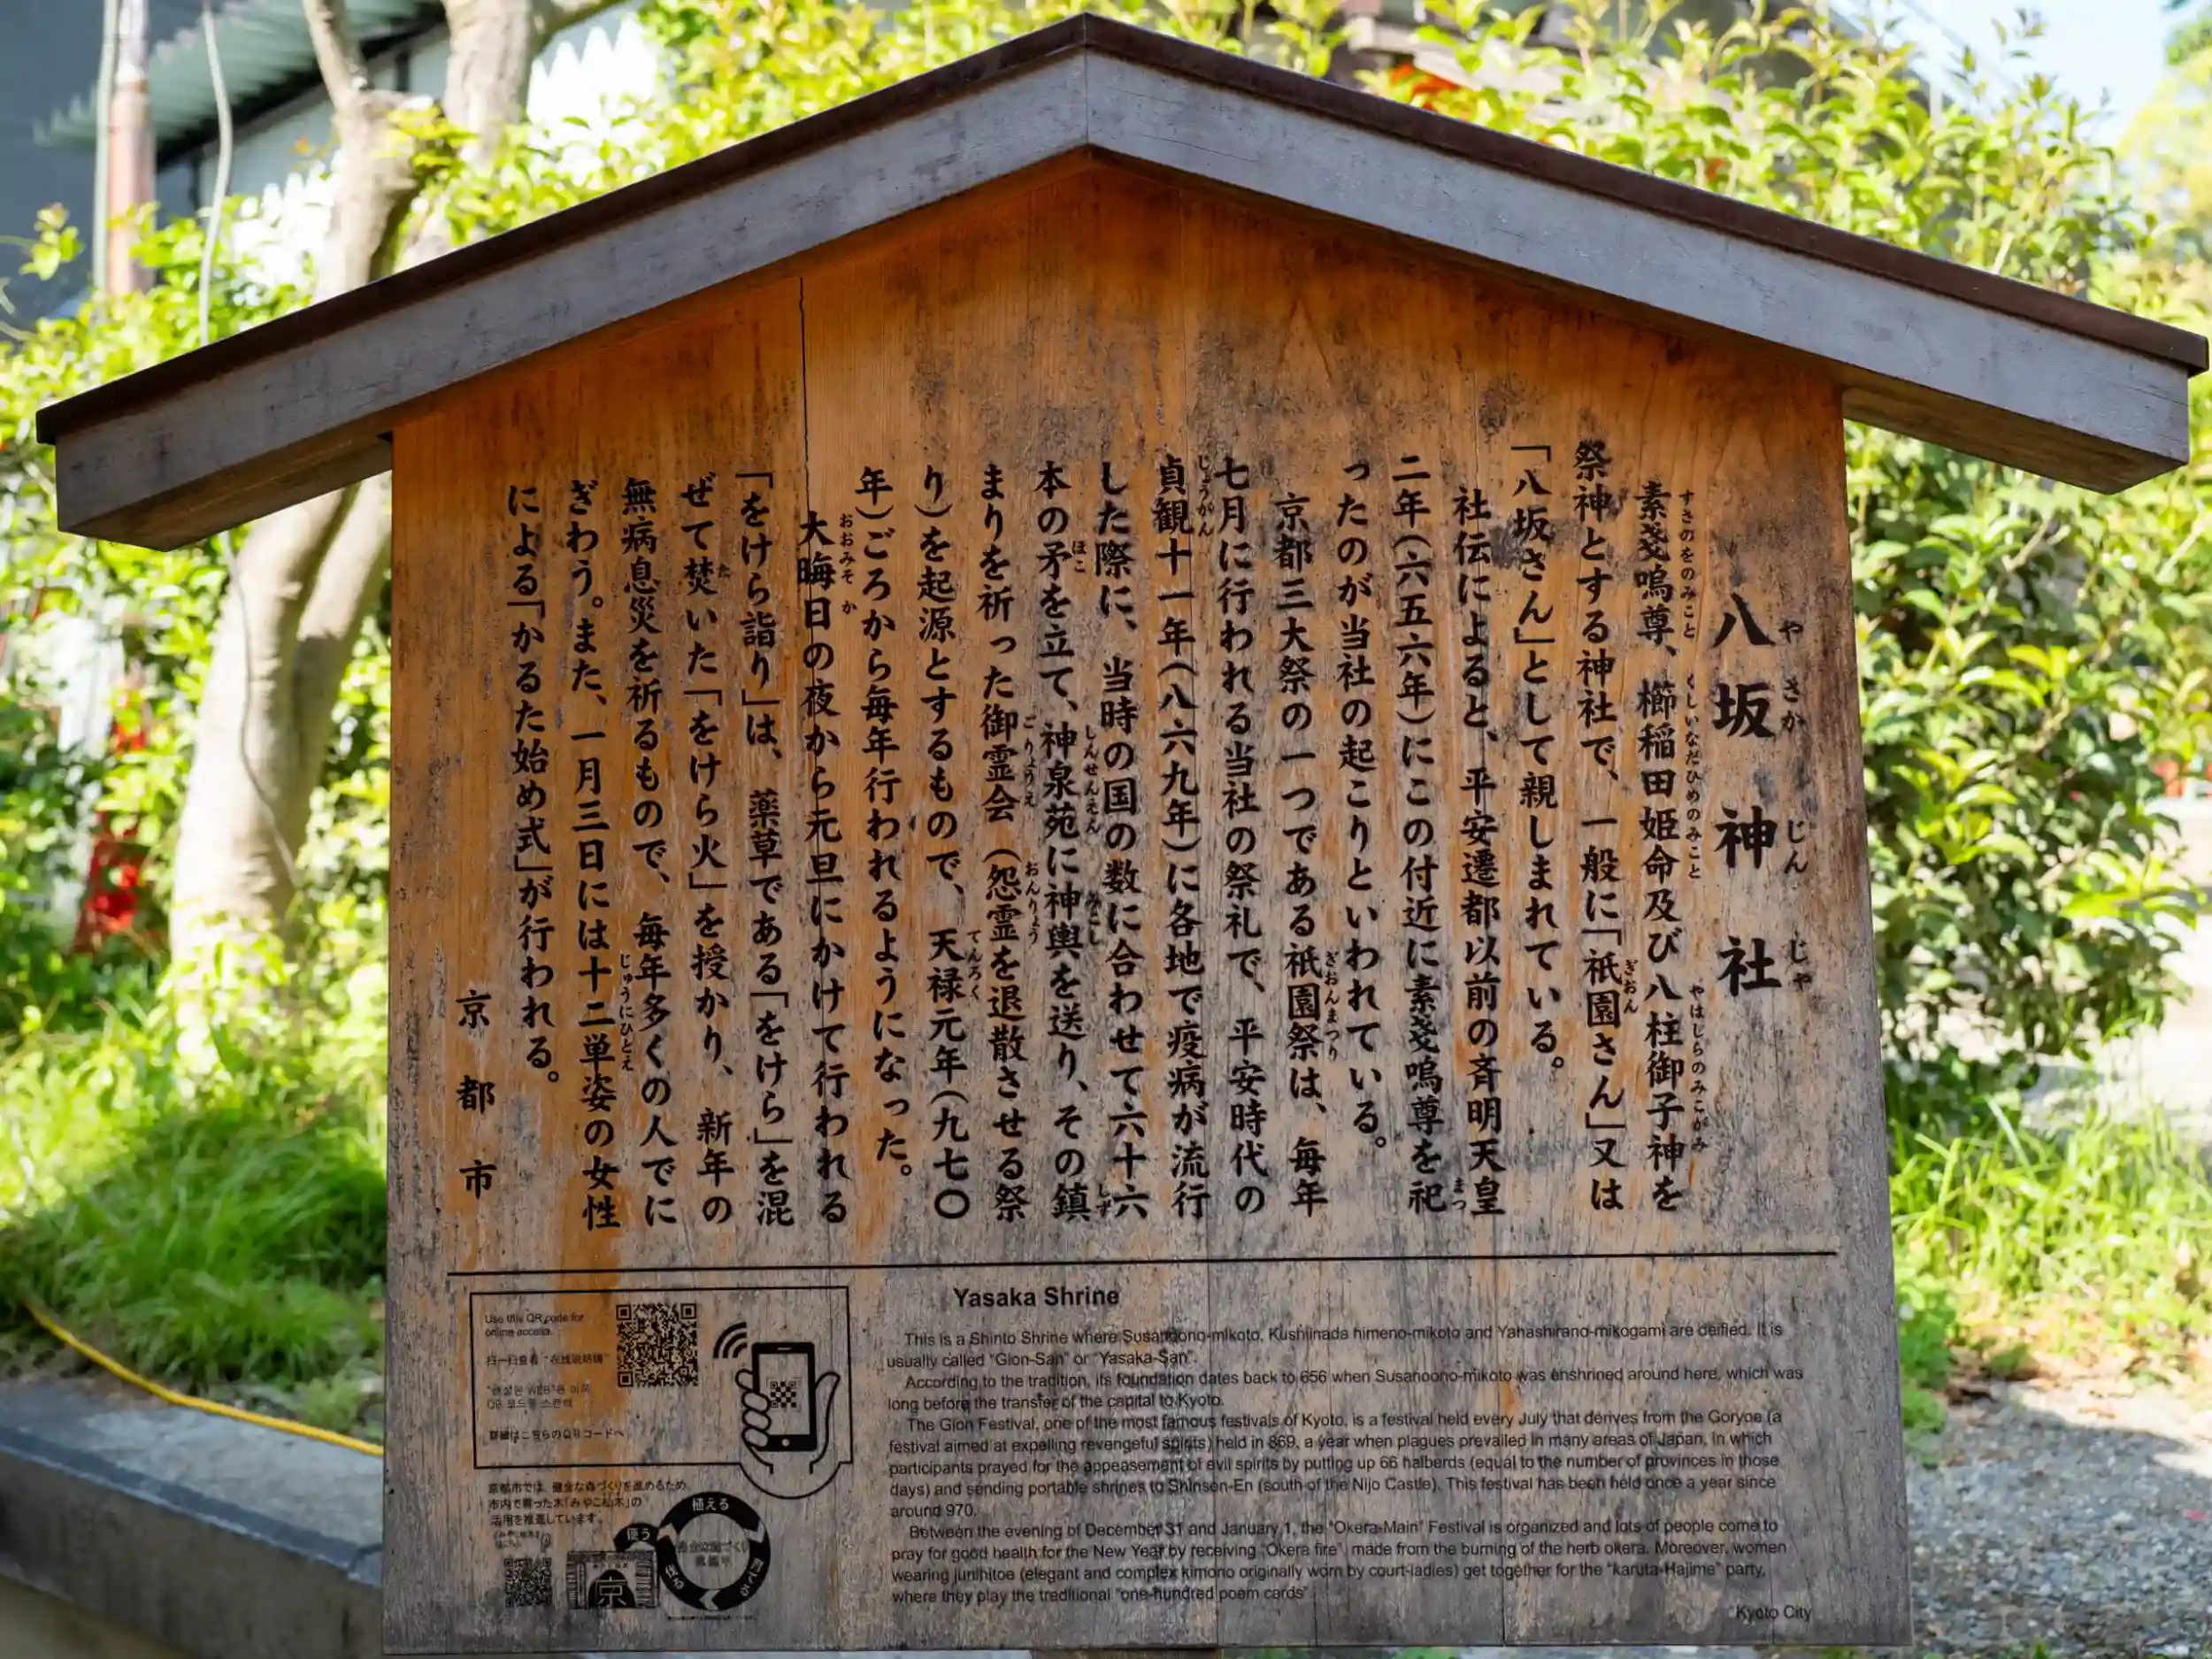 八坂神社
やさかじんじゃ
素戔嗚尊、櫛稲田姫命及び八柱御子神を
すさのをのみこと くしいなだひめのみこと やはしらのみこがみ
祭神とする神社で、一般に「祇園さん」又は
ぎおん
「八坂さん」として親しまれている。
社伝によると、平安遷都以前の斉明天皇
二年(六五六年)にこの付近に素戔嗚尊を祀
まつ
ったのが当社の起こりといわれている。
京都三大祭の一つである祇園祭は、毎年
ぎおんまつり
七月に行われる当社の祭礼で、平安時代の
貞観十一年(八六九年)に各地で疫病が流行
じょうがん
した際に、当時の国の数に合わせて六十六
本の矛を立て、神泉苑に神輿を送り、その鎮
ほこ しんせんえん みこし しず
まりを祈った御霊会(怨霊を退散させる祭
ごりょうえ おんりょう
り)を起源とするもので、天禄元年(九七〇
てんろく
年)ごろから毎年行われるようになった。
大晦日の夜から元旦にかけて行われる
おおみそか
「をけら詣り」は、薬草である「をけら」を混
ぜて焚いた「をけら火」を授かり、新年の
た
無病息災を祈るもので、毎年多くの人でに
ぎわう。また、一月三日には十二単姿の女性
じゅうにひとえ
による「かるた始め式」が行われる。
京都市
Use this QR code for
online access.
扫一扫查看“在线说明牌”
"해설판 WEB"은 이쪽
QR 코드를 스캔해
詳細はこちらのQRコードへ
京都市では、健全な森づくりを進めるため
市内で育った木「みやこ杣木」の
活用を推進しています。
植える
育てる
使う
京
Yasaka Shrine
This is a Shinto Shrine where Susanoono-mikoto, Kushiinada himeno-mikoto and Yahashirano-mikogami are deified. It is
usually called "Gion-San" or "Yasaka-San".
According to the tradition, its foundation dates back to 656 when Susanoono-mikoto was enshrined around here, which was
long before the transfer of the capital to Kyoto.
The Gion Festival, one of the most famous festivals of Kyoto, is a festival held every July that derives from the Goryoe (a
festival aimed at expelling revengeful spirits) held in 869, a year when plagues prevailed in many areas of Japan, in which
participants prayed for the appeasement of evil spirits by putting up 66 halberds (equal to the number of provinces in those
days) and sending portable shrines to Shinsen-En (south of the Nijo Castle). This festival has been held once a year since
around 970.
Between the evening of December 31 and January 1, the "Okera-Main" Festival is organized and lots of people come to
pray for good health for the New Year by receiving "Okera fire", made from the burning of the herb okera. Moreover, women
wearing junihitoe (elegant and complex kimono originally worn by court-ladies) get together for the "karuta-Hajime" party,
where they play the traditional "one-hundred poem cards"
Kyoto City